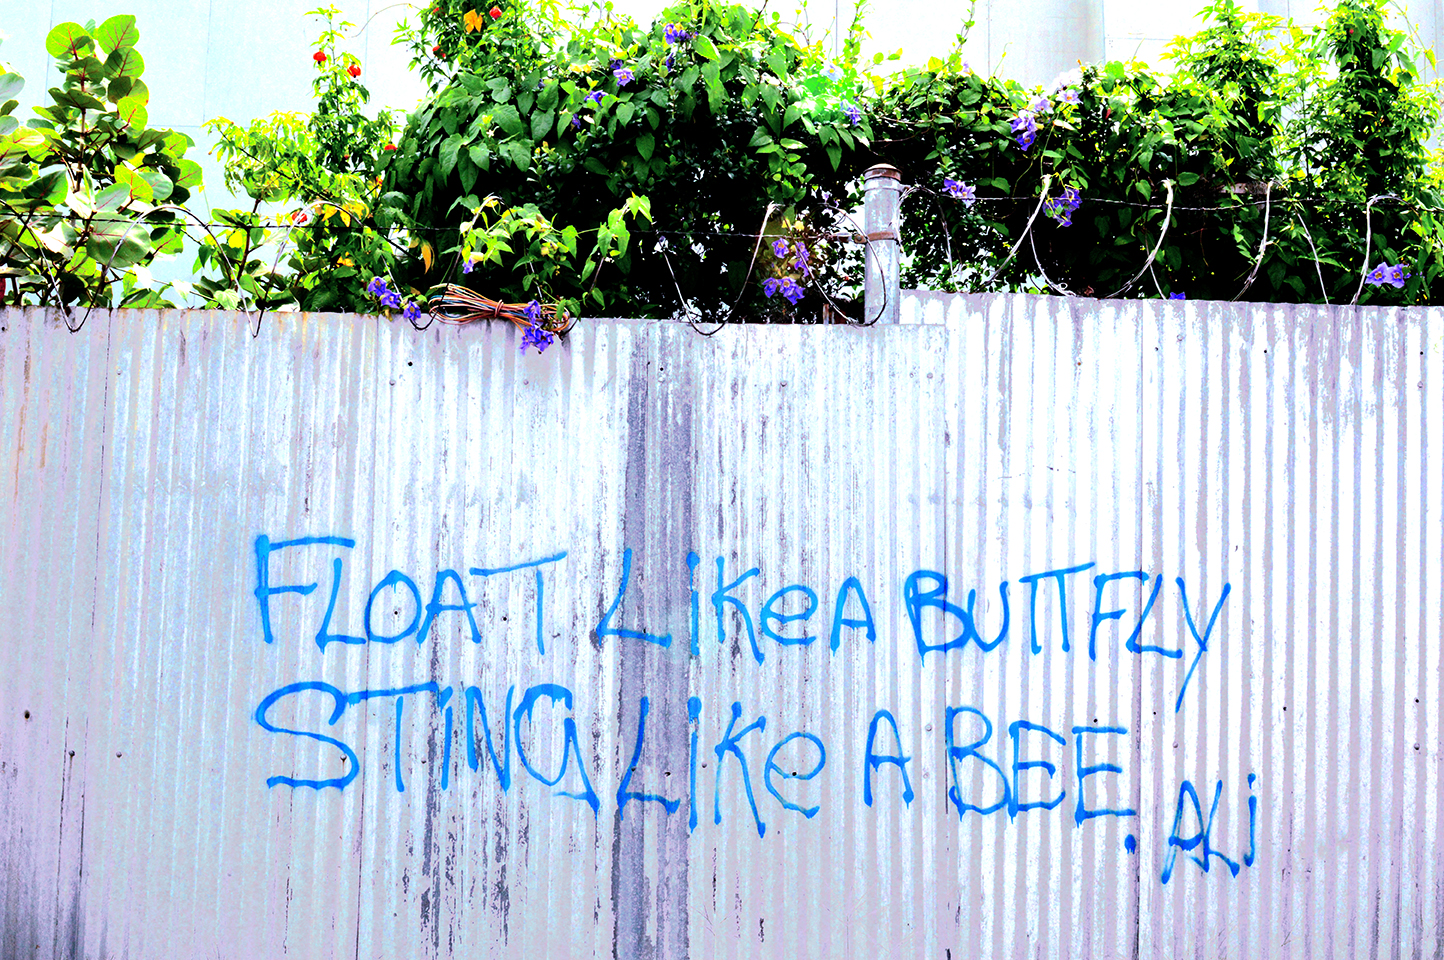 FLOAT LiKe A BUTTFLY
STiNG LiKe A BEE.
ALi